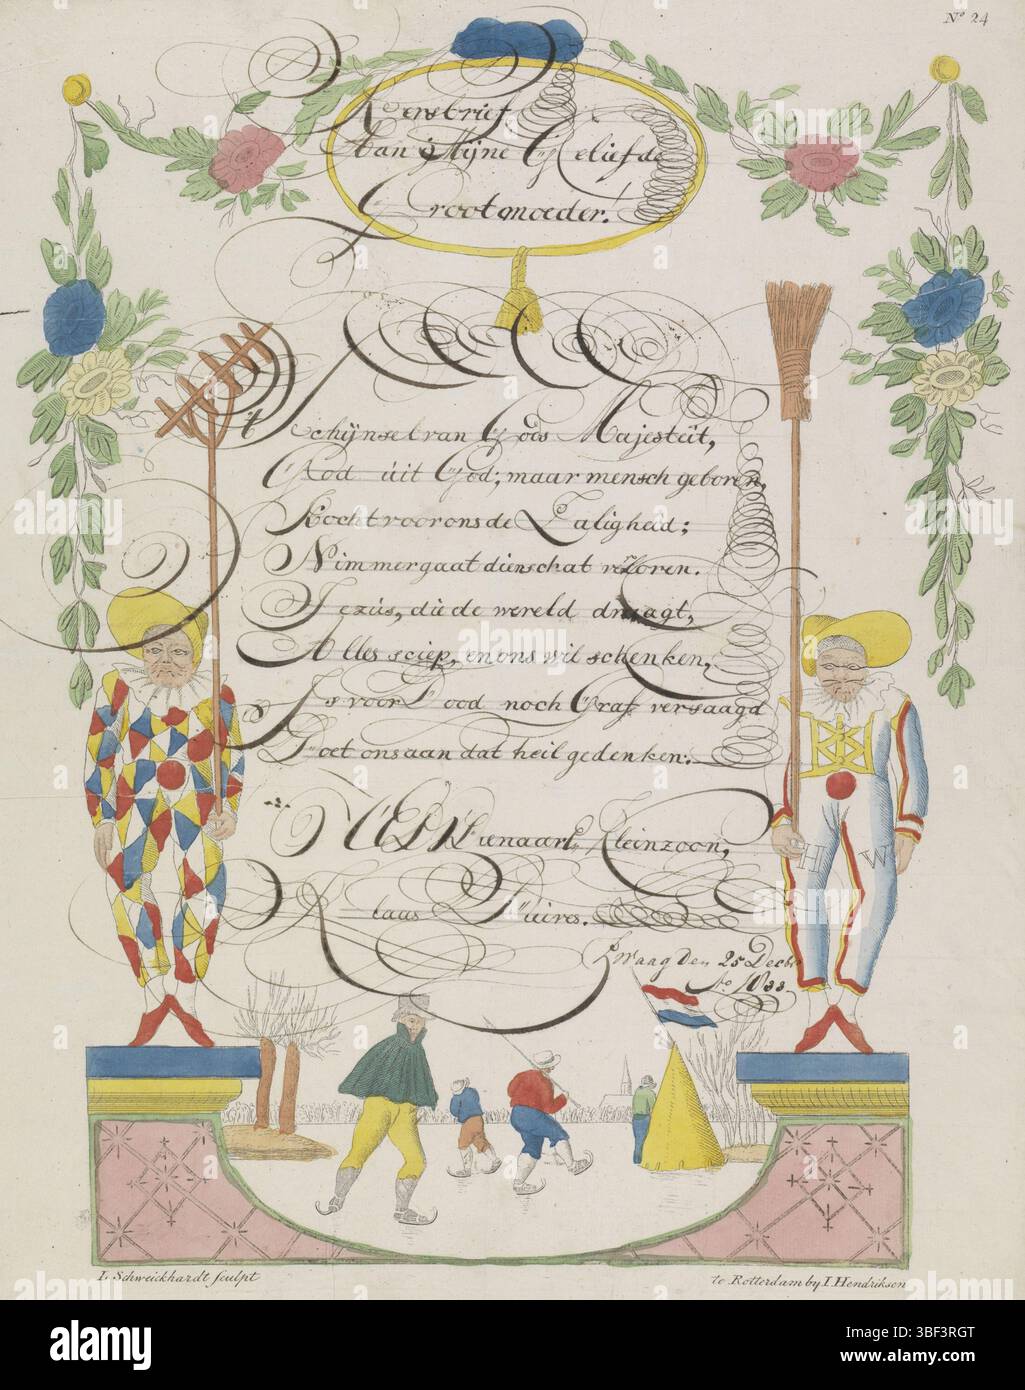 No 24
Kersbrief
Aan Mijne Geliefde
Grootmoeder.
't Schijnsel van Gods Majesteit,
God uit God; maar mensch geboren,
Kocht voor ons de Zaligheid;
Nimmer gaat dien schat verloren.
Jezus, die de wereld draagt,
Alles sciep, en ons wil schenken,
Is voor Dood noch Graf versaagd
Doet ons aan dat heil gedenken.
UED Dienaar Kleinzoon,
Klaas
Waag Den 25 Decbr
Ao
H W
I. Schweickhardt sculpt
te Rotterdam by I. Hendriksen
alamy
Image ID: 3BF3RGT
www.alamy.com